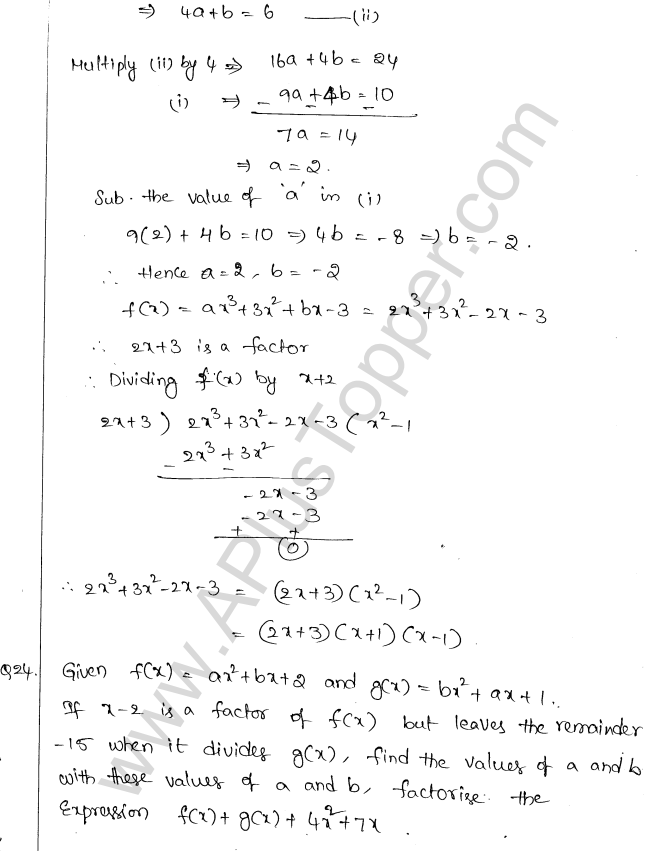 ⇒ 4a+b = 6 ——(ii)
Multiply (ii) by 4 ⇒ 16a+4b = 24
(i) ⇒ - 9a+4b = 10
- -
7a = 14
⇒ a = 2.
Sub. the value of 'a' in (i)
9(2) + 4b = 10 ⇒ 4b = -8 ⇒ b = -2.
∴ Hence a = 2, b = -2
f(x) = ax³+3x²+bx-3 = 2x³+3x²-2x-3
∴ 2x+3 is a factor
∴ Dividing f(x) by x+2
2x+3 ) 2x³+3x²-2x-3 ( x²-1
- 2x³ + 3x²
-
-2x-3
-2x-3
+ +
0
∴ 2x³+3x²-2x-3 = (2x+3)(x²-1)
= (2x+3)(x+1)(x-1).
Q24. Given f(x) = ax²+bx+2 and g(x) = bx²+ax+1.
If x-2 is a factor of f(x) but leaves the remainder
-15 when it divides g(x), find the values of a and b
with these values of a and b, factorise the
Expression f(x)+g(x)+4x²+7x
www.APlusTopper.com